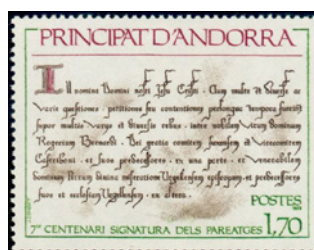 PRINCIPAT D'ANDORRA
In nomine Domini nostri Jesu Cristi. Cum multe et diverse ac
varie questiones, petitiones seu contentiones
super multis et diversis rebus inter nobilem virum dominum
Rogerium Bernardi Dei gratia comitem et vicecomitem
Castriboni et suos predecessores ex una parte et venerabilem
dominum Urgellensem episcopum et predecessores
suos et ecclesiam Urgellensem ex altera
POSTES
1,70
7è CENTENARI SIGNATURA DELS PAREATGES